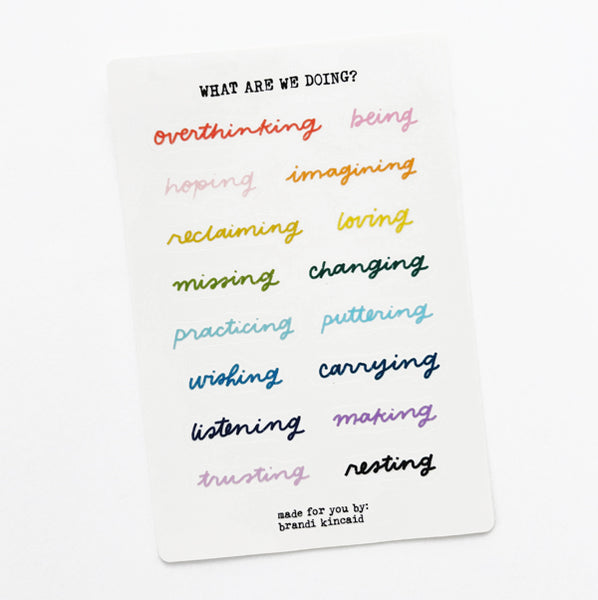 WHAT ARE WE DOING?
overthinking being
hoping imagining
reclaiming loving
missing changing
practicing puttering
wishing carrying
listening making
trusting resting
made for you by:
brandi kincaid